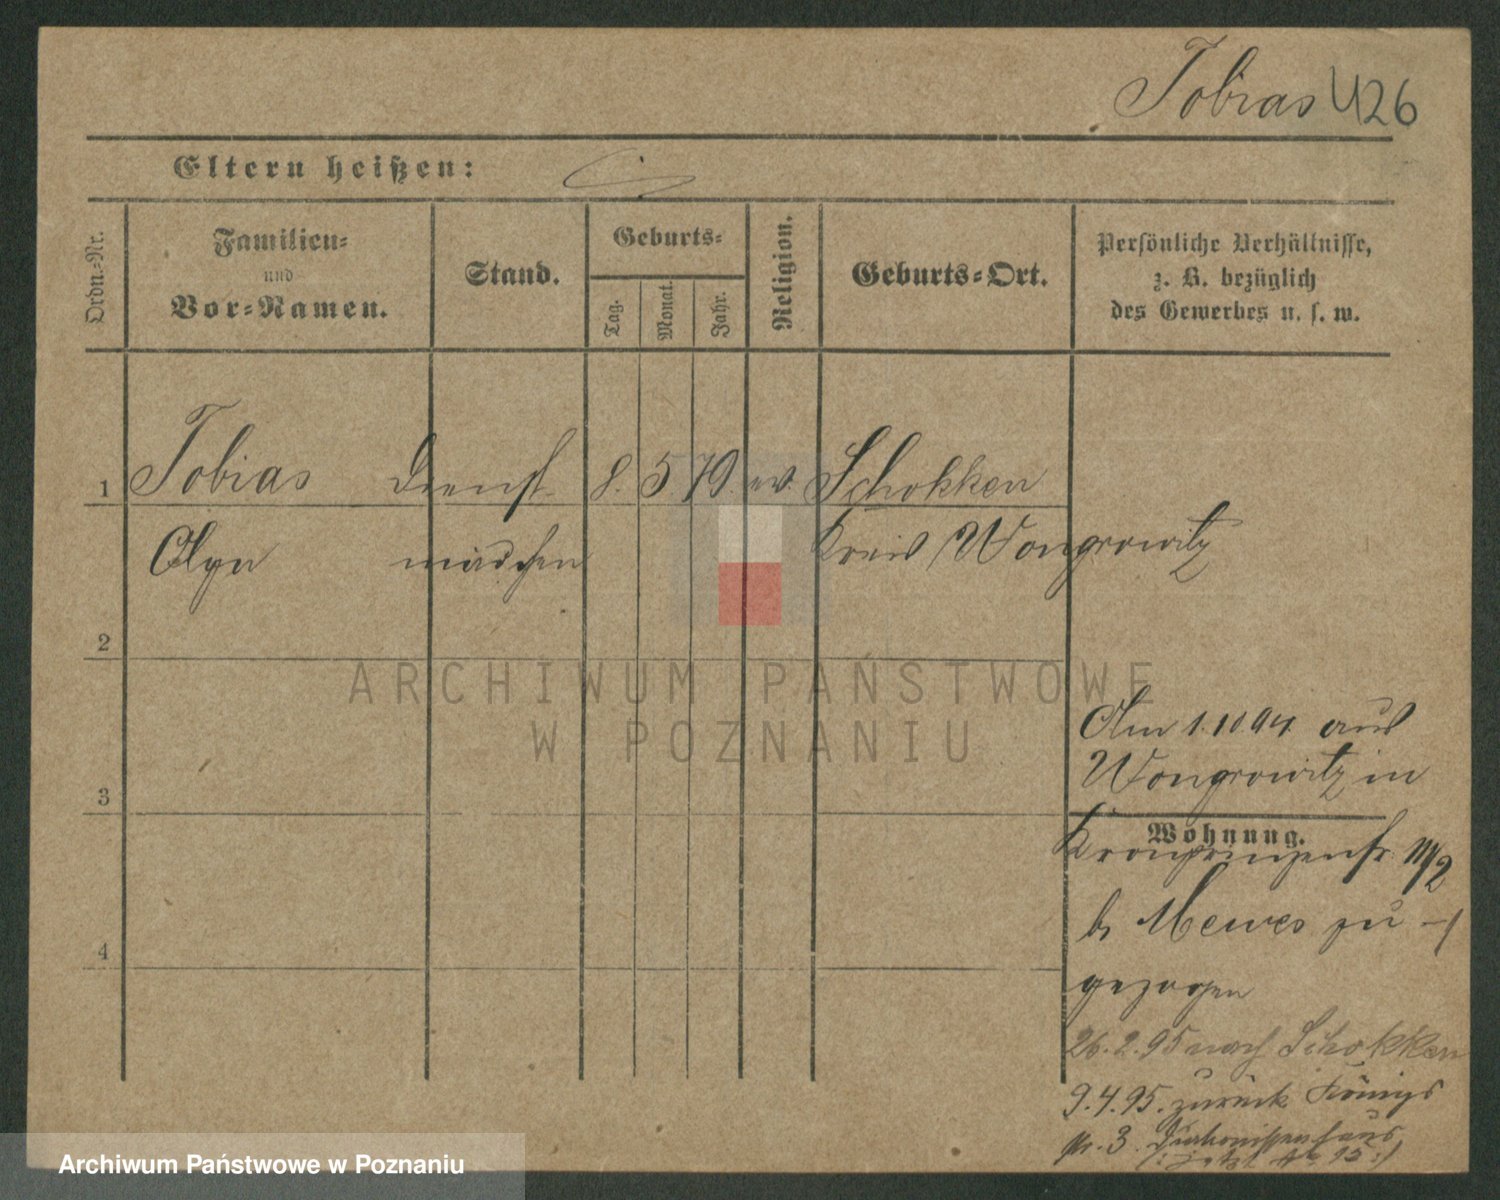 Tobias 426
Eltern heißen:
Ordn.-Nr.
Familien-
und
Vor-Namen.
Stand.
Geburts-
Tag.
Monat.
Jahr.
Religion.
Geburts-Ort.
Persönliche Verhältnisse,
z. B. bezüglich
des Gewerbes u. s. w.
1 Tobias Dienst 8. 5 79. ev. Schokken
mädchen Kreis Wongrowitz
2
3
4
Am 1.10.94. aus
Wongrowitz in
Wohnung.
Kronprinzenstr.
b. Mewes zu-
gezogen
26.2.95 nach Schokken
9.4.95. zurück Königs
Nr. 3. Diakonissenhaus
ARCHIWUM PAŃSTWOWE
W POZNANIU
Archiwum Państwowe w Poznaniu